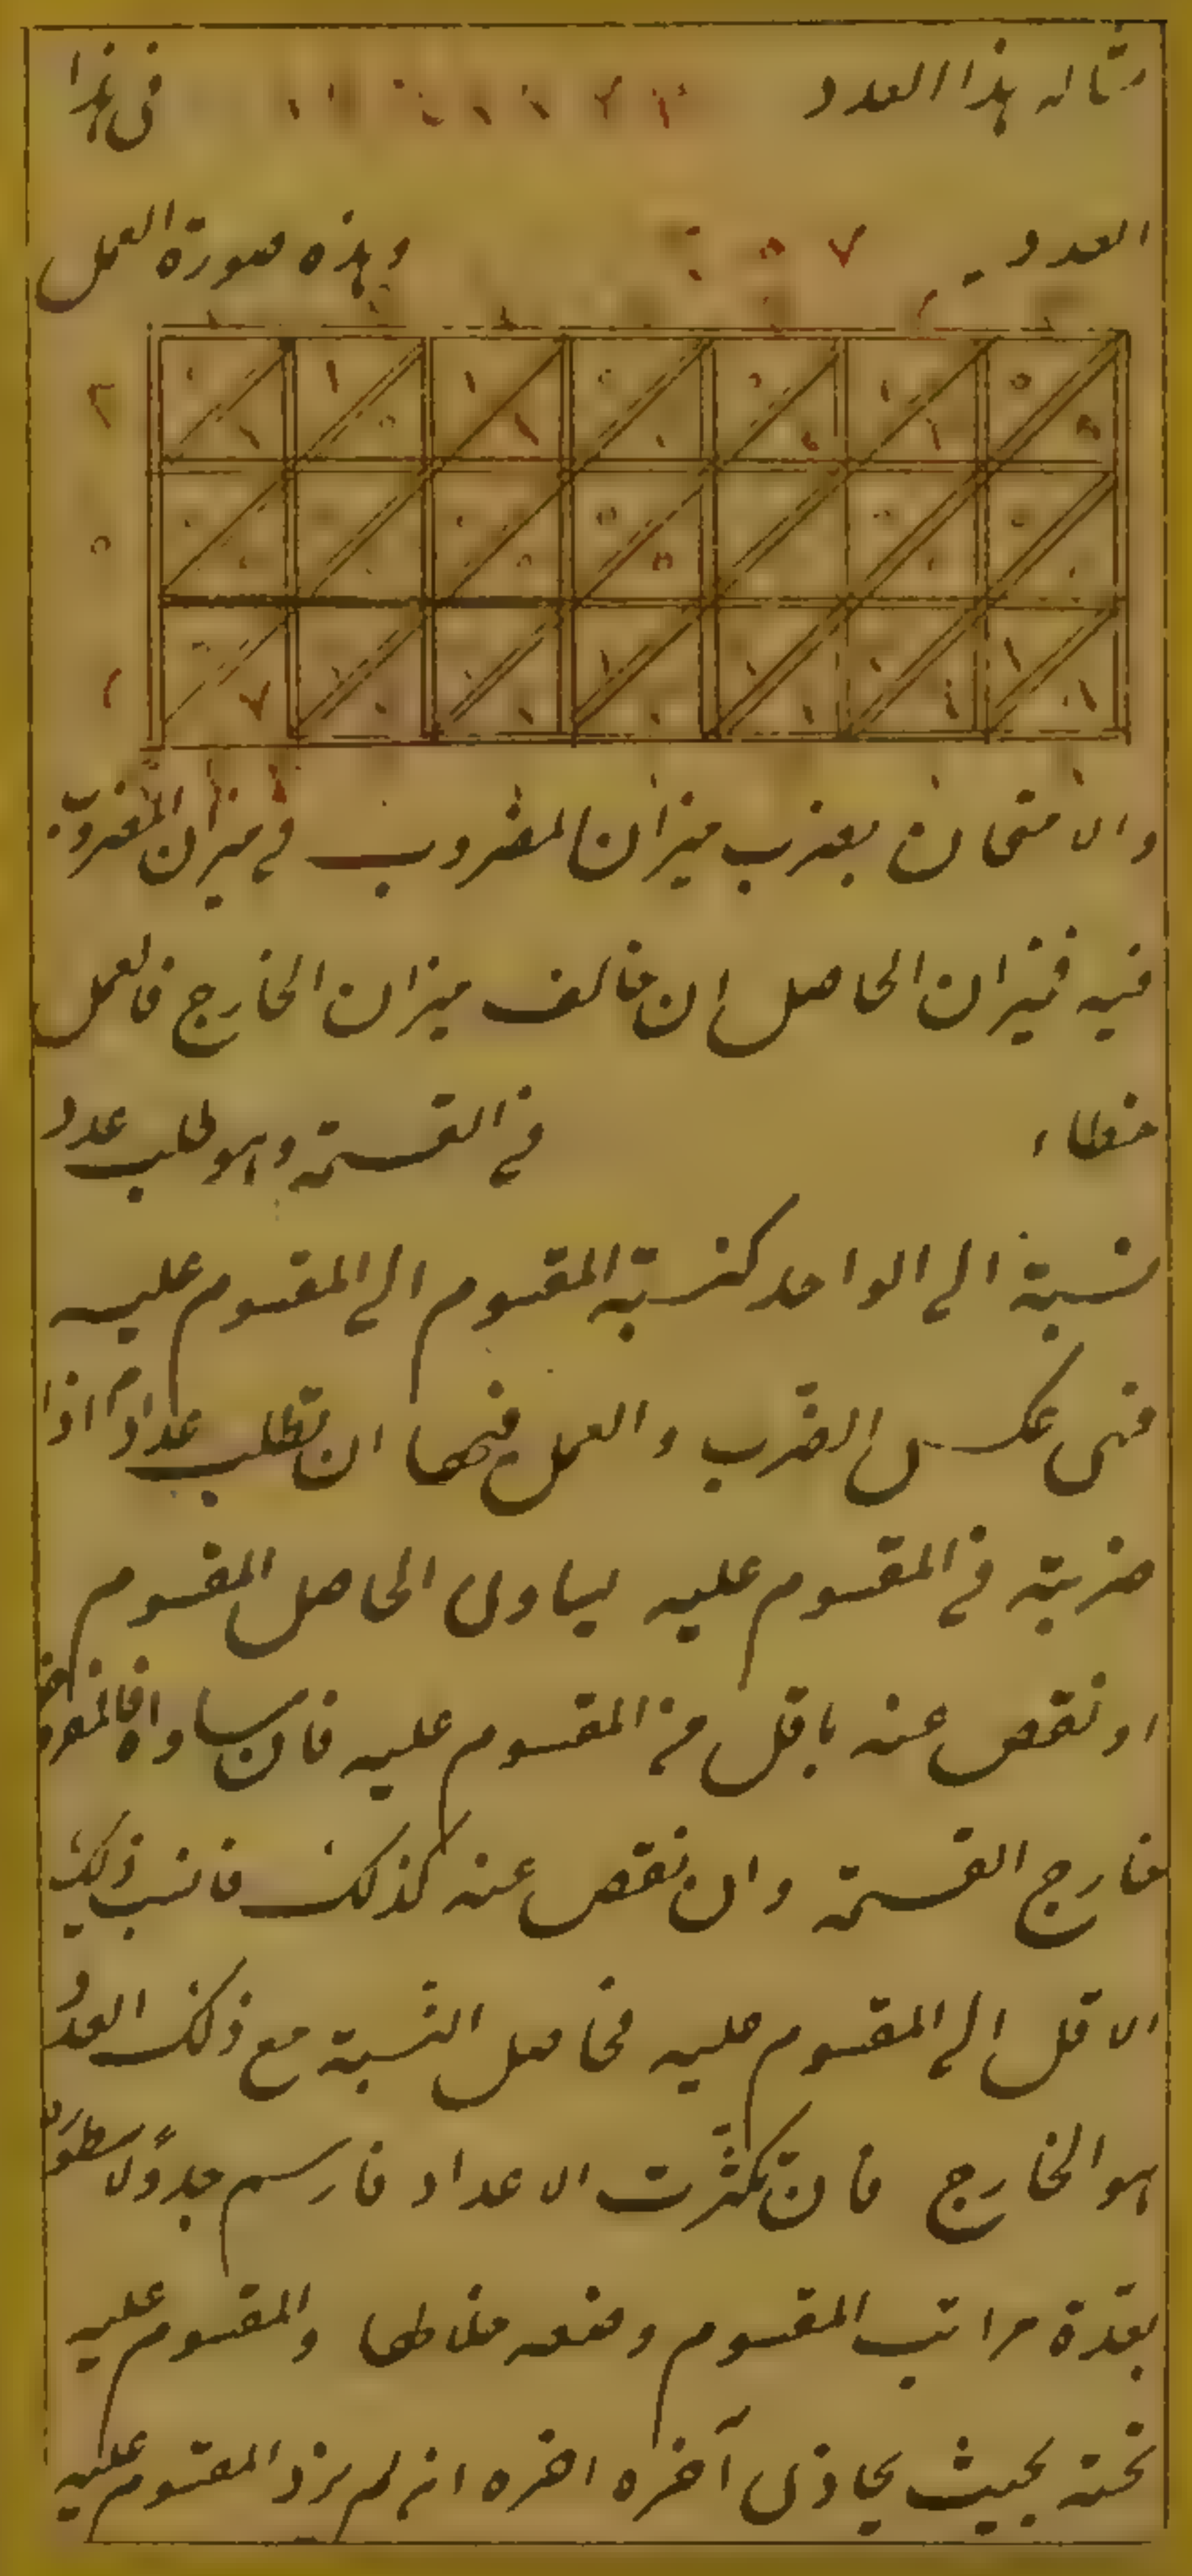 مثاله هذا العدد في هذا
العدد ٧ ٥ وهذه صورة العمل
والامتحان بضرب ميزان المضروب في ميزان المضروب
فيه فميزان الحاصل ان خالف ميزان الخارج فالعمل
خطاء في القسمة وهو طلب عدد
نسبة الى الواحد كنسبة المقسوم الى المقسوم عليه
فهى عكس الضرب والعمل فيها ان تطلب عددا اذا
ضربته في المقسوم عليه يساوى الحاصل المقسوم
او نقص عنه باقل من المقسوم عليه فان ساواه فالمفروض
خارج القسمة وان نقص عنه كذلك فانسب ذلك
الاقل الى المقسوم عليه فحاصل النسبة مع ذلك العدد
هو الخارج فان تكثّرت الاعداد فارسم جدولًا سطوره
بعدّة مراتب المقسوم وضعه خلالها والمقسوم عليه
تحته بحيث يحاذى آخره اخره ان لم يزد المقسوم عليه